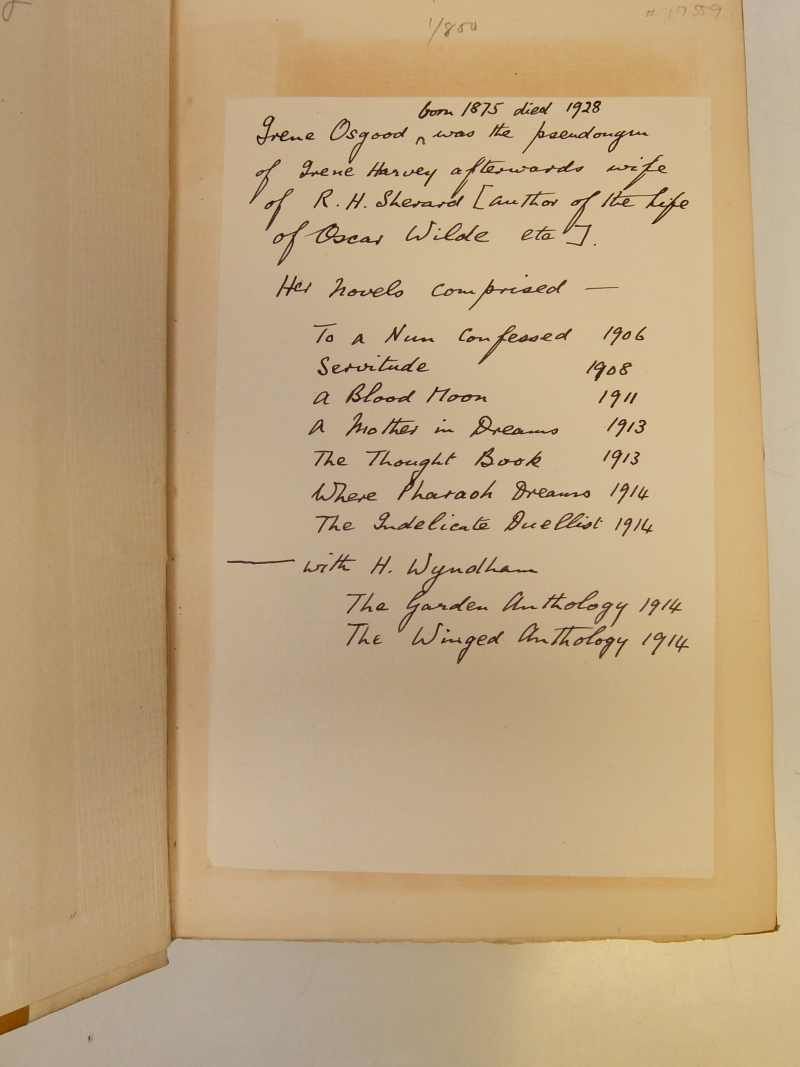 1/850
born 1875 died 1928
Irene Osgood ^ was the pseudongm
of Irene Harvey afterwards wife
of R. H. Sherard [author of the Life
of Oscar Wilde etc].
Her novels comprised —
To a Nun Confessed 1906
Servitude 1908
A Blood Moon 1911
A Mother in Dreams 1913
The Thought Book 1913
Where Pharaoh Dreams 1914
The Indelicate Duellist 1914
— with H. Wyndham
The Garden Anthology 1914
The Winged Anthology 1914